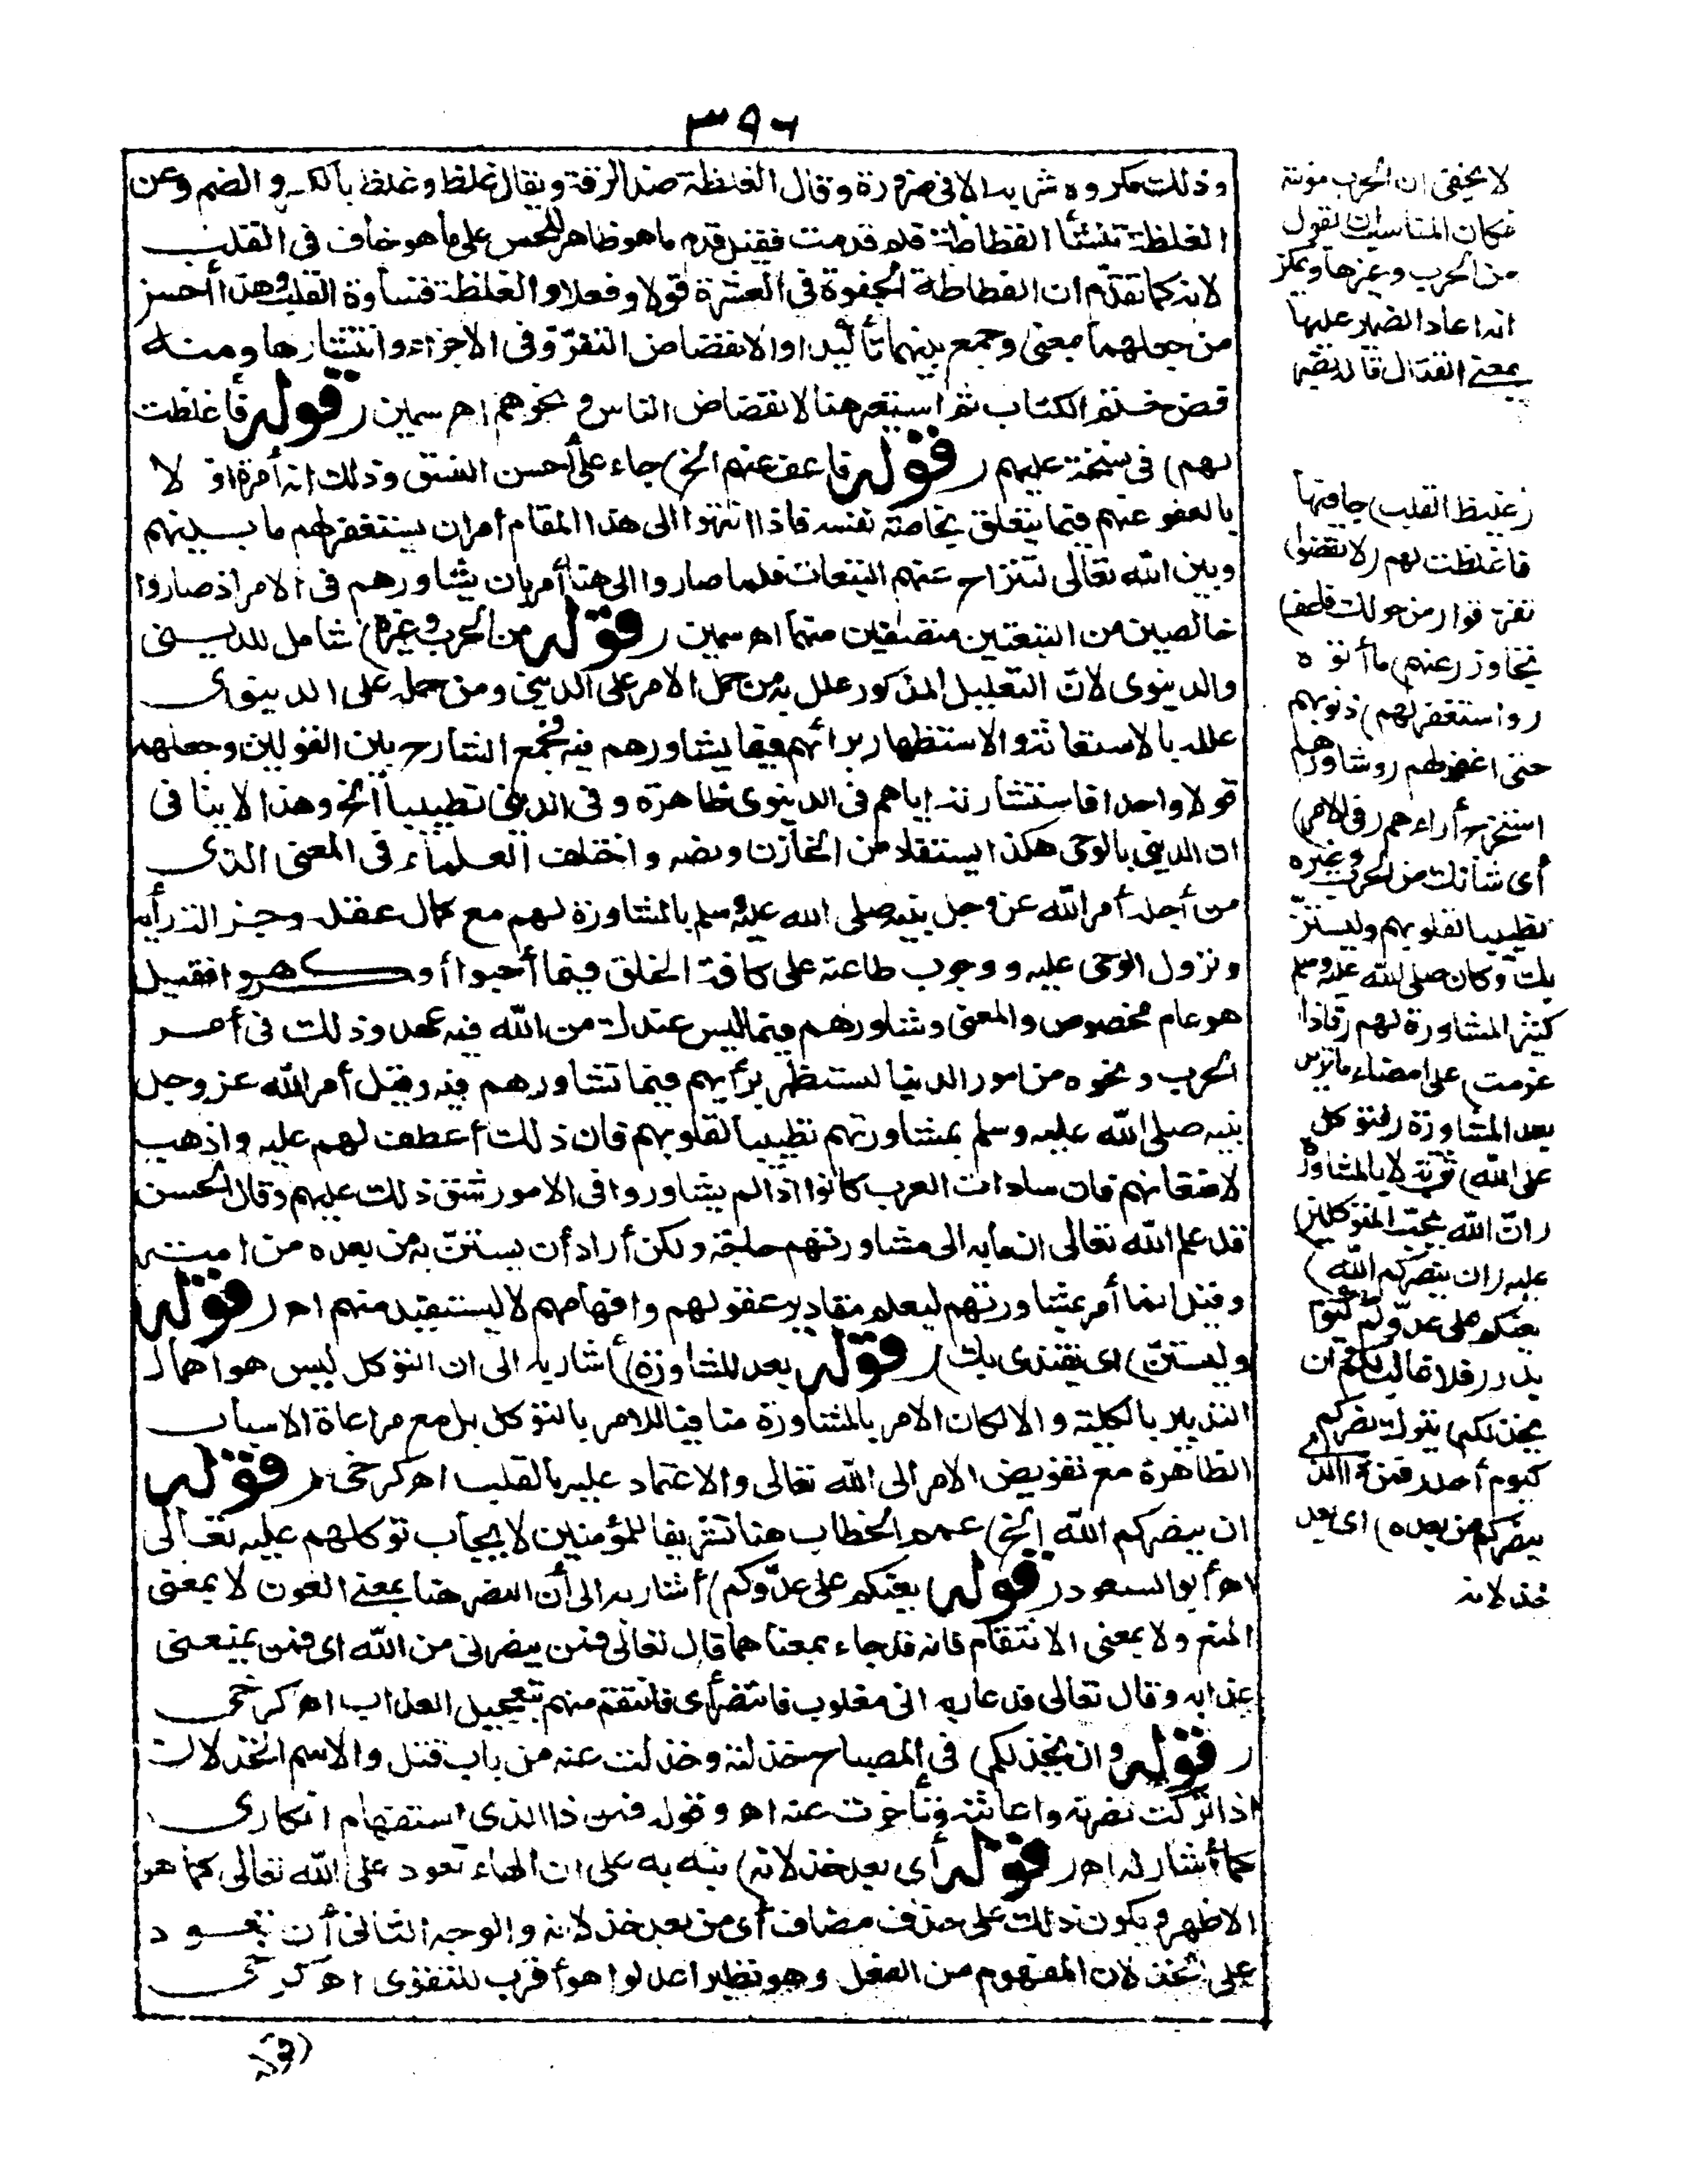 ٣٩٦
وذلك مكروه شربه الا فى ضرورة وقال الغلظة ضد الرقة ويقال غلظ وغلظ بالكسر والضم وعن
الغلظة تنشأ الفظاظة فلم قدمت فقيل قدم ما هو ظاهر للحس على ما هو خاف فى القلب
لانه كما تقدّم ان الفظاظة الجفوة فى العشرة قولا وفعلا والغلظة قساوة القلب وهذا أحسن
من جعلهما بمعنى وجمع بينهما تأكيدا والانفضاض التفرّق فى الاجزاء وانتشارها ومنه
فض ختم الكتاب ثم استعير هنا لانفضاض الناس ونحوهم اه سمين (قوله فأغلظت
لهم) فى نسخة عليهم (قوله فاعف عنهم الخ) جاء على أحسن النسق وذلك انه أمر أولا
بالعفو عنهم فيما يتعلق بخاصة نفسه فاذا انتهوا الى هذا المقام أمر ان يستغفر لهم ما بينهم
وبين الله تعالى لتنزاح عنهم التبعات فلما صاروا الى هنا أمر بان يشاورهم فى الامر اذ صاروا
خالصين من التبعتين متصفين منهما اه سمين (قوله من الحرب وغيره) شامل للدينى
والدنيوى لانّ التعليل المذكور علل به من حمل الامر على الدينى ومن حمله على الدنيوى
علله بالاستعانة والاستظهار برأيهم فيما يشاورهم فيه فجمع الشارح بين القولين وجعلهما
قولا واحدا فاستشارته اياهم فى الدنيوى ظاهرة وفى الدينى تطييبا الخ وهذا لا ينافى
ان الدينى بالوحى هكذا يستفاد من الخازن ونصه واختلف العلماء فى المعنى الذى
من أجله أمر الله عز وجل نبيه صلى الله عليه وسلم بالمشاورة لهم مع كمال عقله وجزالة رأيه
ونزول الوحى عليه ووجوب طاعته على كافة الخلق فيما أحبوا أو كرهوا فقيل
هو عام مخصوص والمعنى وشاورهم فيما ليس عندك من الله فيه عهد وذلك فى أمر
الحرب ونحوه من امور الدنيا لتستظهر برأيهم فيما تشاورهم فيه وقيل أمر الله عز وجل
نبيه صلى الله عليه وسلم بمشاورتهم تطييبا لقلوبهم فان ذلك أعطف لهم عليه واذهب
لاضغانهم فان سادات العرب كانوا اذا لم يشاوروا فى الامور شق ذلك عليهم وقال الحسن
قد علم الله تعالى ان ما به الى مشاورتهم حاجة ولكن أراد أن يستنّ به من بعده من امته
وقيل انما أمر بمشاورتهم ليعلم مقادير عقولهم وافهامهم لا ليستفيد منهم اه (قوله
وليستنّ) اى يقتدى بك (قوله بعد المشاورة) أشار به الى ان التوكل ليس هو اهمال
التدبير بالكلية والا لكان الامر بالمشاورة منافيا للامر بالتوكل بل مع مراعاة الاسباب
الظاهرة مع تفويض الامر الى الله تعالى والاعتماد عليه بالقلب اه كرخى (قوله
ان ينصركم الله الخ) عمم الخطاب هنا تشريفا للمؤمنين لايجاب توكلهم عليه تعالى
اه أبو السعود (قوله يعنكم على عدّوكم) أشار به الى أن النصر هنا بمعنى العون لا بمعنى
المنع ولا بمعنى الانتقام فانه قد جاء بمعناهما قال تعالى فمن ينصرنى من الله اى فمن يمنعنى
عذابه وقال تعالى فدعا ربه انى مغلوب فانتصر أى فانتقم منهم بتعجيل العذاب اه كرخى
(قوله وان يخذلكم) فى المصباح خذلته وخذلت عنه من باب قتل والاسم الخذلان
اذا تركت نصرته واعانته وتأخرت عنه اه وقوله فمن ذا الذى استفهام انكارى
كما أشار له اه (قوله أى بعد خذلانه) نبه به على ان الهاء تعود على الله تعالى كما هو
الاظهر ويكون ذلك على حذف مضاف أى من بعد خذلانه والوجه الثانى أن تعود
على الخذلان المفهوم من الفعل وهو نظير اعدلوا هو أقرب للتقوى اه كرخى
لا يخفى ان الحرب مؤنثة
فكان المناسب ان يقول
من الحرب وغيرها ويمكن
انه اعاد الضمير عليها
بمعنى القتال قاله نصير
(غليظ القلب) جافيها
فاغلظت لهم (لانفضوا)
تفرّقوا (من حولك فاعف)
تجاوز (عنهم) ما أتوه
(واستغفر لهم) ذنوبهم
حتى اغفر لهم (وشاورهم)
استخرج آراءهم (فى الامر)
أى شأنك من الحرب وغيره
تطييبا لقلوبهم وليستنّ
بك وكان صلى الله عليه وسلم
كثير المشاورة لهم (فاذا
عزمت) على امضاء ما تريد
بعد المشاورة (فتوكل
على الله) ثق به لا بالمشاورة
(انّ الله يحبّ المتوكلين)
عليه (ان ينصركم الله)
يعنكم على عدّوكم كيوم
بدر (فلا غالب لكم وان
يخذلكم) بترك نصركم
كيوم أحد (فمن ذا الذى
ينصركم من بعده) اى بعد
خذلانه